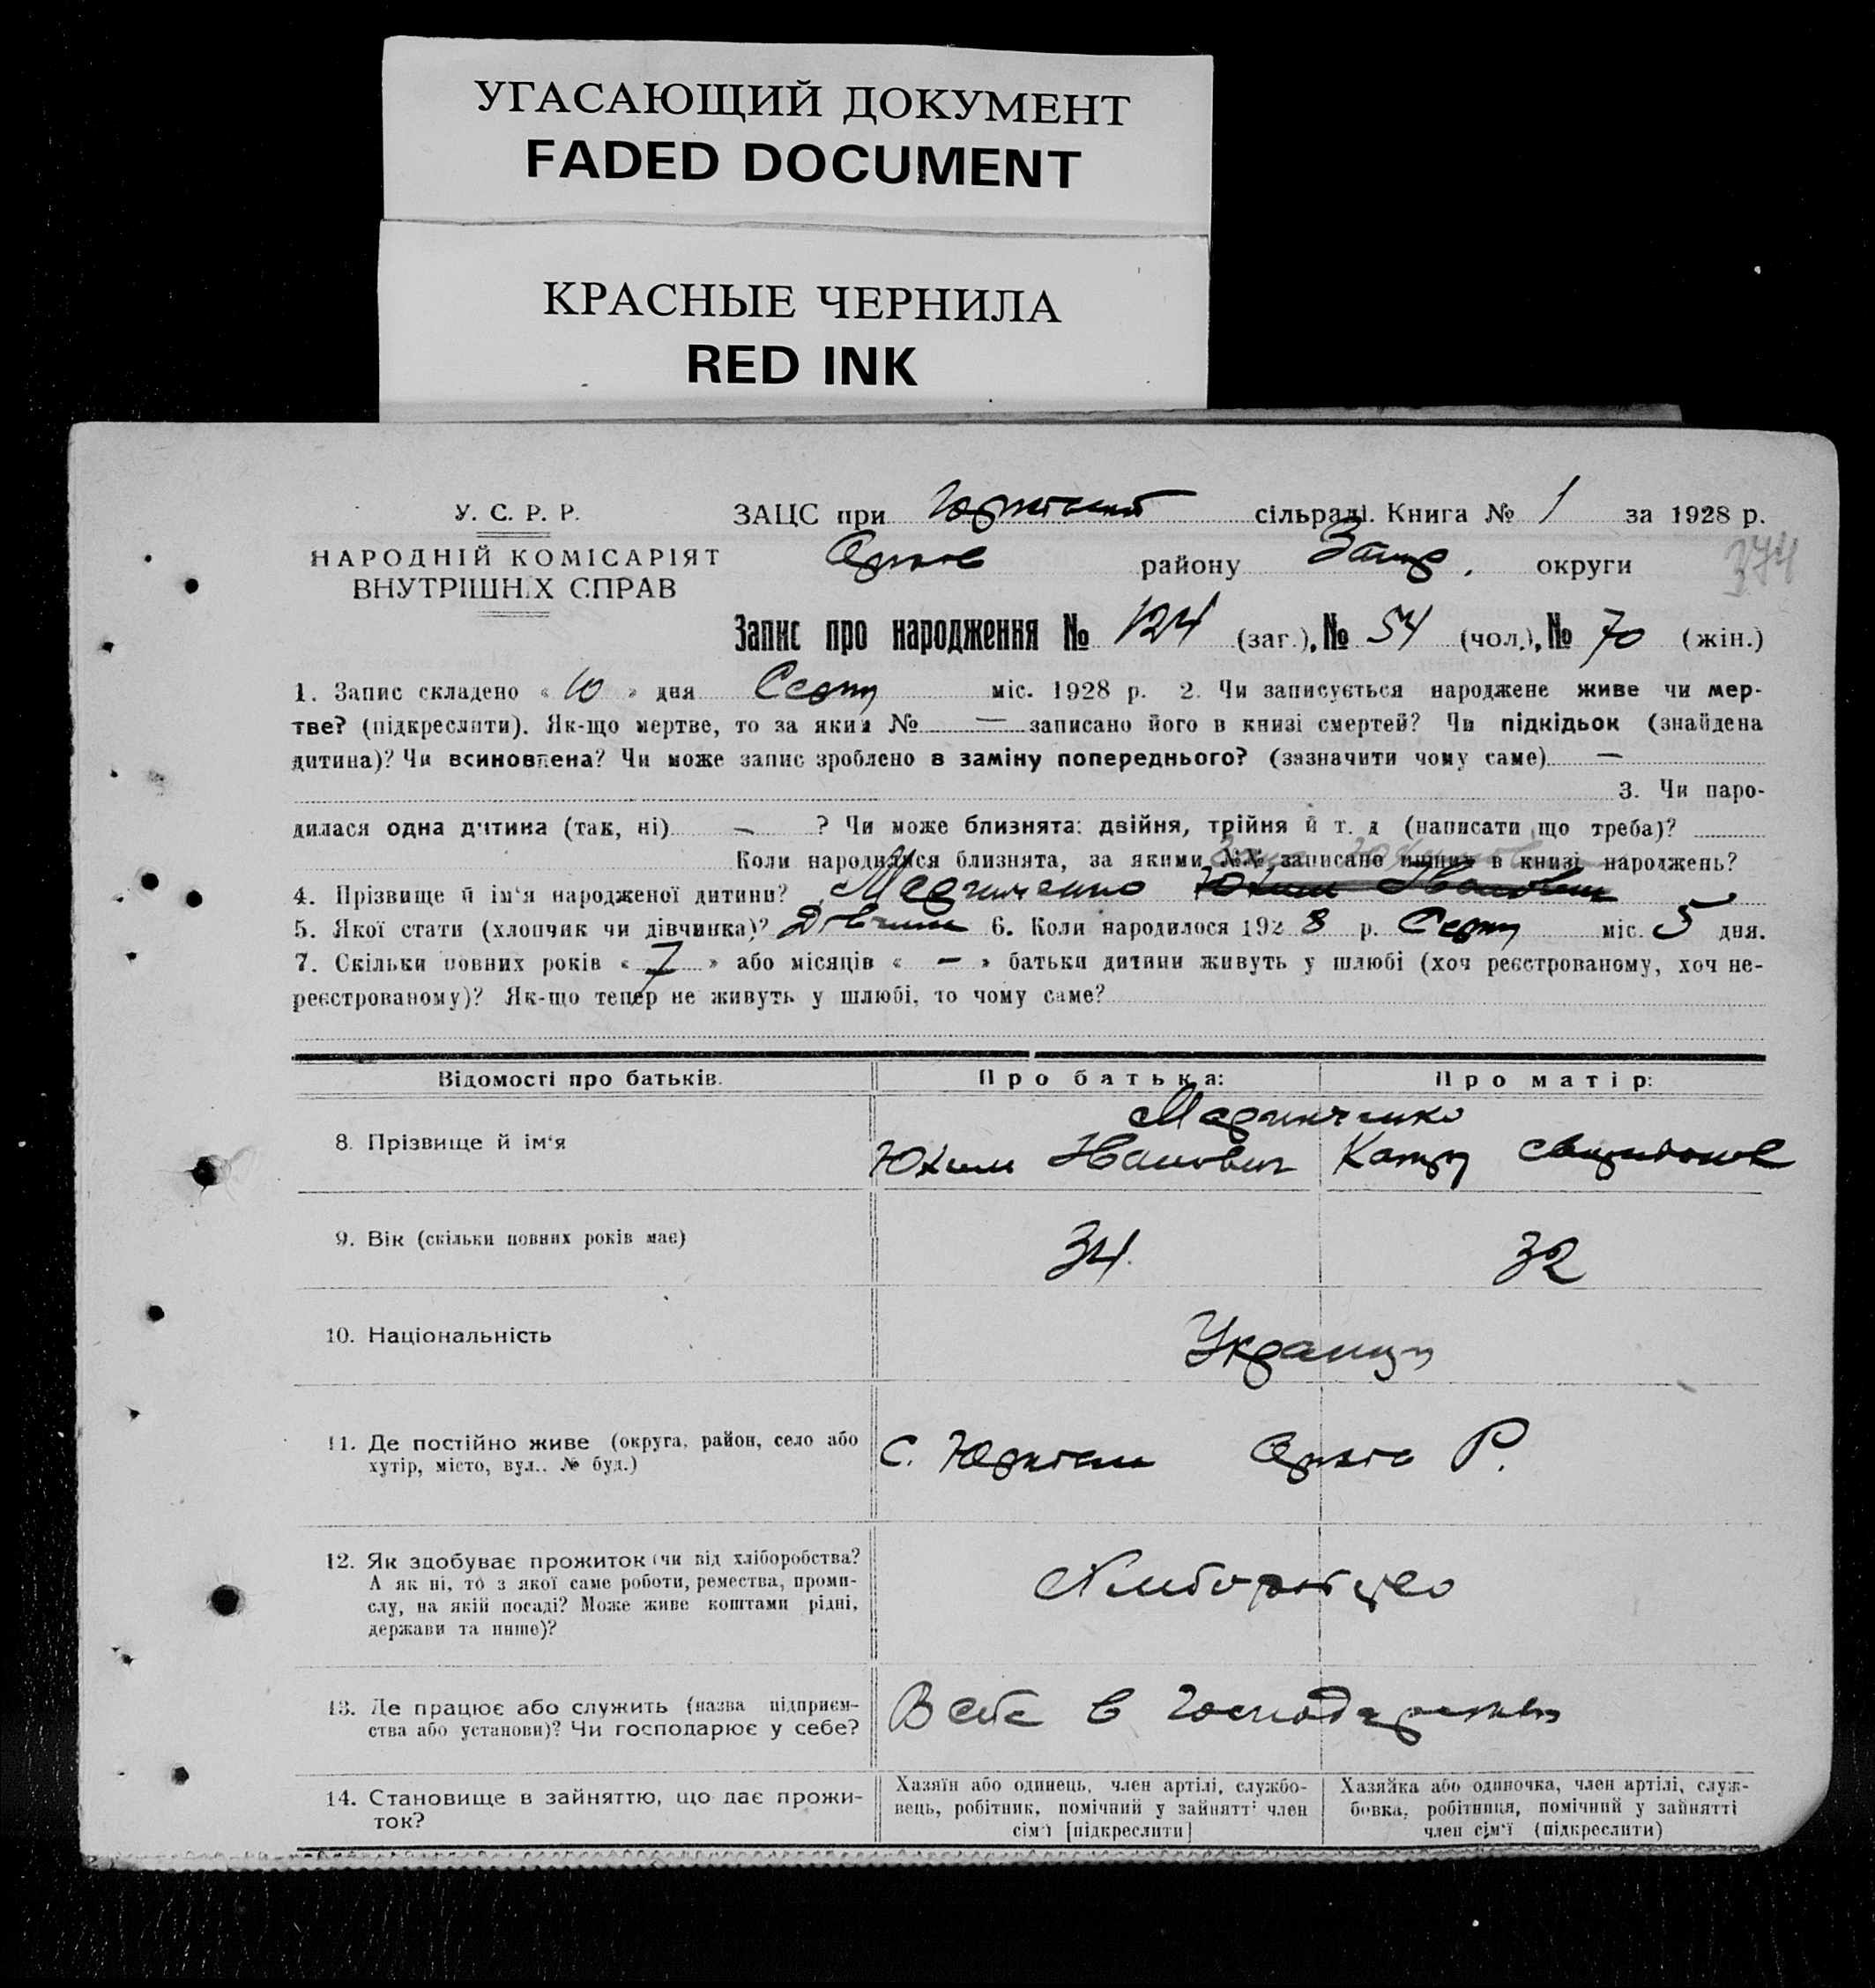 УГАСАЮЩИЙ ДОКУМЕНТ
FADED DOCUMENT
КРАСНЫЕ ЧЕРНИЛА
RED INK
У. С. Р. Р.
НАРОДНІЙ КОМІСАРІЯТ
ВНУТРІШНІХ СПРАВ
ЗАЦС при сільраді. Книга № 1 за 1928 р.
району Запор. округи 374
Запис про народження № 124 (заг.), № 54 (чол.), № 70 (жін.)
1. Запис складено « 10 » дня Серпн міс. 1928 р. 2. Чи записується народжене живе чи мер-
тве? (підкреслити). Як-що мертве, то за яким № — записано його в книзі смертей? Чи підкідьок (знайдена
дитина)? Чи всиновлена? Чи може запис зроблено в заміну попереднього? (зазначити чому саме) —
3. Чи наро-
дилася одна дитина (так, ні) — ? Чи може близнята: двійня, трійня й т. д (написати що треба)?
Коли народилися близнята, за якими №№ записано инших в книзі народжень?
4. Прізвище й ім'я народженої дитини? Маринченко Юхим Іванович
5. Якої стати (хлопчик чи дівчинка)? Дівчина 6. Коли народилося 1928 р. Серпн міс. 5 дня.
7. Скільки повних років « 7 » або місяців « — » батьки дитини живуть у шлюбі (хоч реєстрованому, хоч не-
реєстрованому)? Як-що тепер не живуть у шлюбі, то чому саме?
Відомості про батьків. Про батька: Про матір:
Маринченко
8. Прізвище й ім'я Юхим Іванович Катер
9. Вік (скільки повних років має) 34 32
10. Національність Українці
11. Де постійно живе (округа, район, село або
хутір, місто, вул.. № буд.)
С. Юрківка Оріхів Р.
12. Як здобуває прожиток (чи від хліборобства?
А як ні, то з якої саме роботи, ремества, проми-
слу, на якій посаді? Може живе коштами рідні,
держави та инше)?
Хліборобство
13. Де працює або служить (назва підприєм-
ства або установи)? Чи господарює у себе?
В себе в господарстві
14. Становище в зайняттю, що дає прожи-
ток?
Хазяїн або одинець, член артілі, службо-
вець, робітник, помічний у зайнятті член
сім'ї [підкреслити]
Хазяйка або одиночка, член артілі, служ-
бовка, робітниця, помічний у зайнятті
член сім'ї (підкреслити)